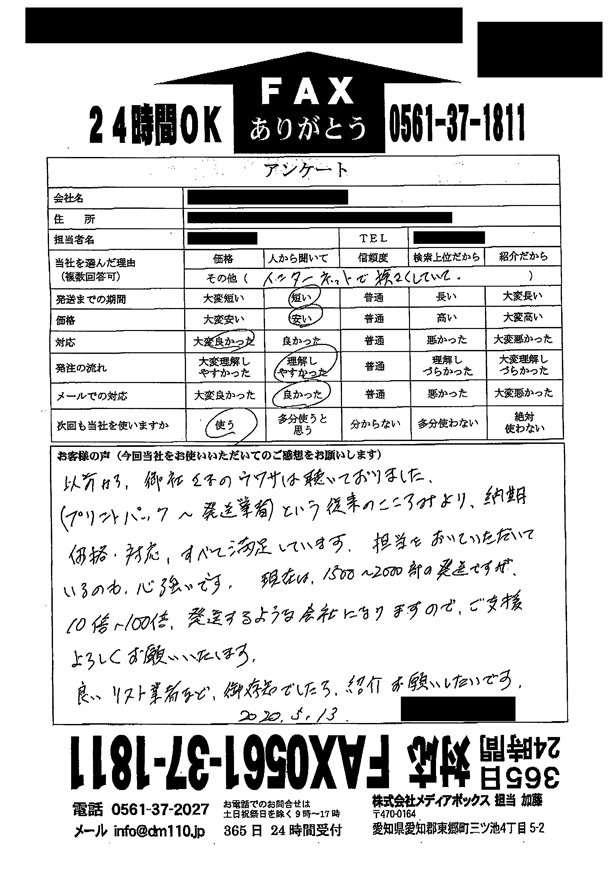 FAX
ありがとう
24時間OK
0561-37-1811
アンケート
会社名
住　所
担当者名 TEL
当社を選んだ理由
（複数回答可）
価格 人から聞いて 信頼度 検索上位だから 紹介だから
その他（ インターネットで検索していて。 ）
発送までの期間 大変短い 短い 普通 長い 大変長い
価格 大変安い 安い 普通 高い 大変高い
対応 大変良かった 良かった 普通 悪かった 大変悪かった
発注の流れ 大変理解しやすかった 理解しやすかった 普通 理解しづらかった 大変理解しづらかった
メールでの対応 大変良かった 良かった 普通 悪かった 大変悪かった
次回も当社を使いますか 使う 多分使うと思う 分からない 多分使わない 絶対使わない
お客様の声（今回当社をお使いいただいてのご感想をお願いします）
以前から、御社のウワサは聴いておりました。
(プリントパック～発送業者)という従来のこころみより、納期
価格・対応、すべて満足しています。担当をおいていただいて
いるのも、心強いです。現在は、1500～2000部の発送ですが、
10倍～100倍、発送するような会社になりますので、ご支援
よろしくお願いいたします。
良いリスト業者など、御存知でしたら、紹介お願いしたいです。
2020.5.13
365日
24時間
対応
FAX0561-37-1811
電話 0561-37-2027
メール info@dm110.jp
お電話でのお問合せは
土日祝祭日を除く9時～17時
365日 24時間受付
株式会社メディアボックス 担当 加藤
〒470-0164
愛知県愛知郡東郷町三ツ池4丁目5-2